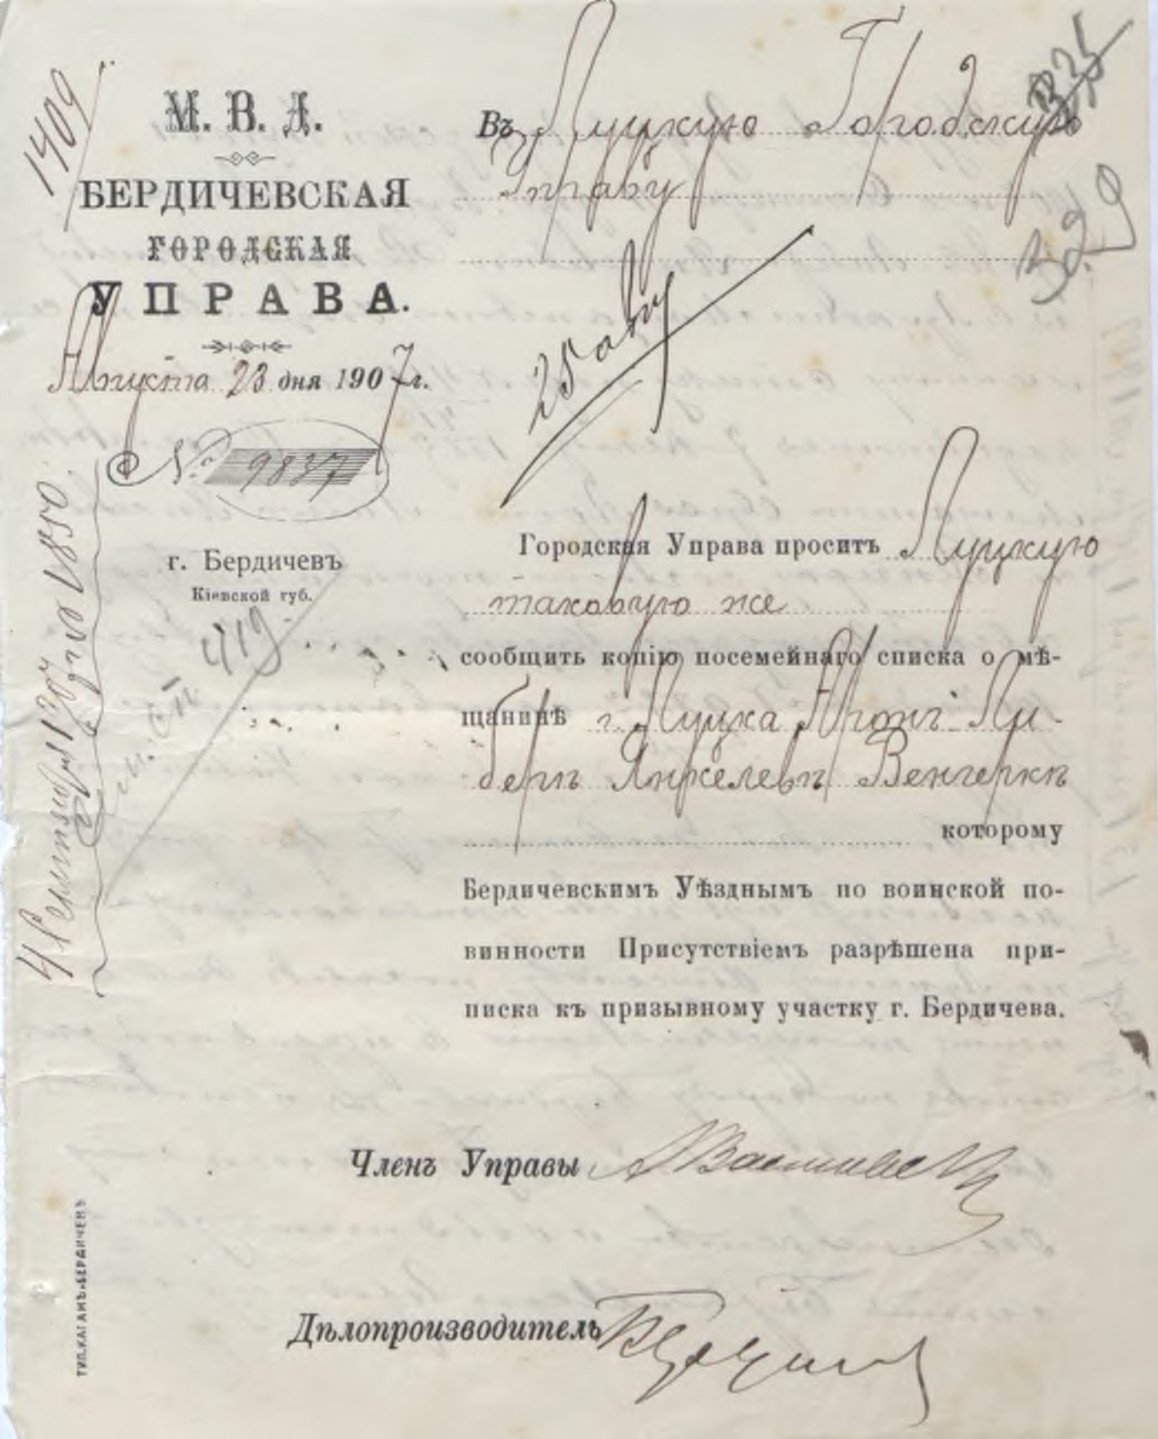 1409
М. В. Д.
БЕРДИЧЕВСКАЯ
ГОРОДСКАЯ
УПРАВА.
Августа 23 дня 1907 г.
№ 9837
г. Бердичевъ
Кіевской губ.
419
4 Сентября 1907 года 1850
Въ Луцкую Городскую
Управу
329
25 авг
Городская Управа проситъ Луцкую
таковую же
сообщить копію посемейнаго списка о мѣ-
щанинѣ г. Луцка
берѣ Янкелевѣ Венгеркѣ
которому
Бердичевскимъ Уѣзднымъ по воинской по-
винности Присутствіемъ разрѣшена при-
писка къ призывному участку г. Бердичева.
Членъ Управы
Дѣлопроизводитель
ТИП. КАГАНЪ БЕРДИЧЕВЪ